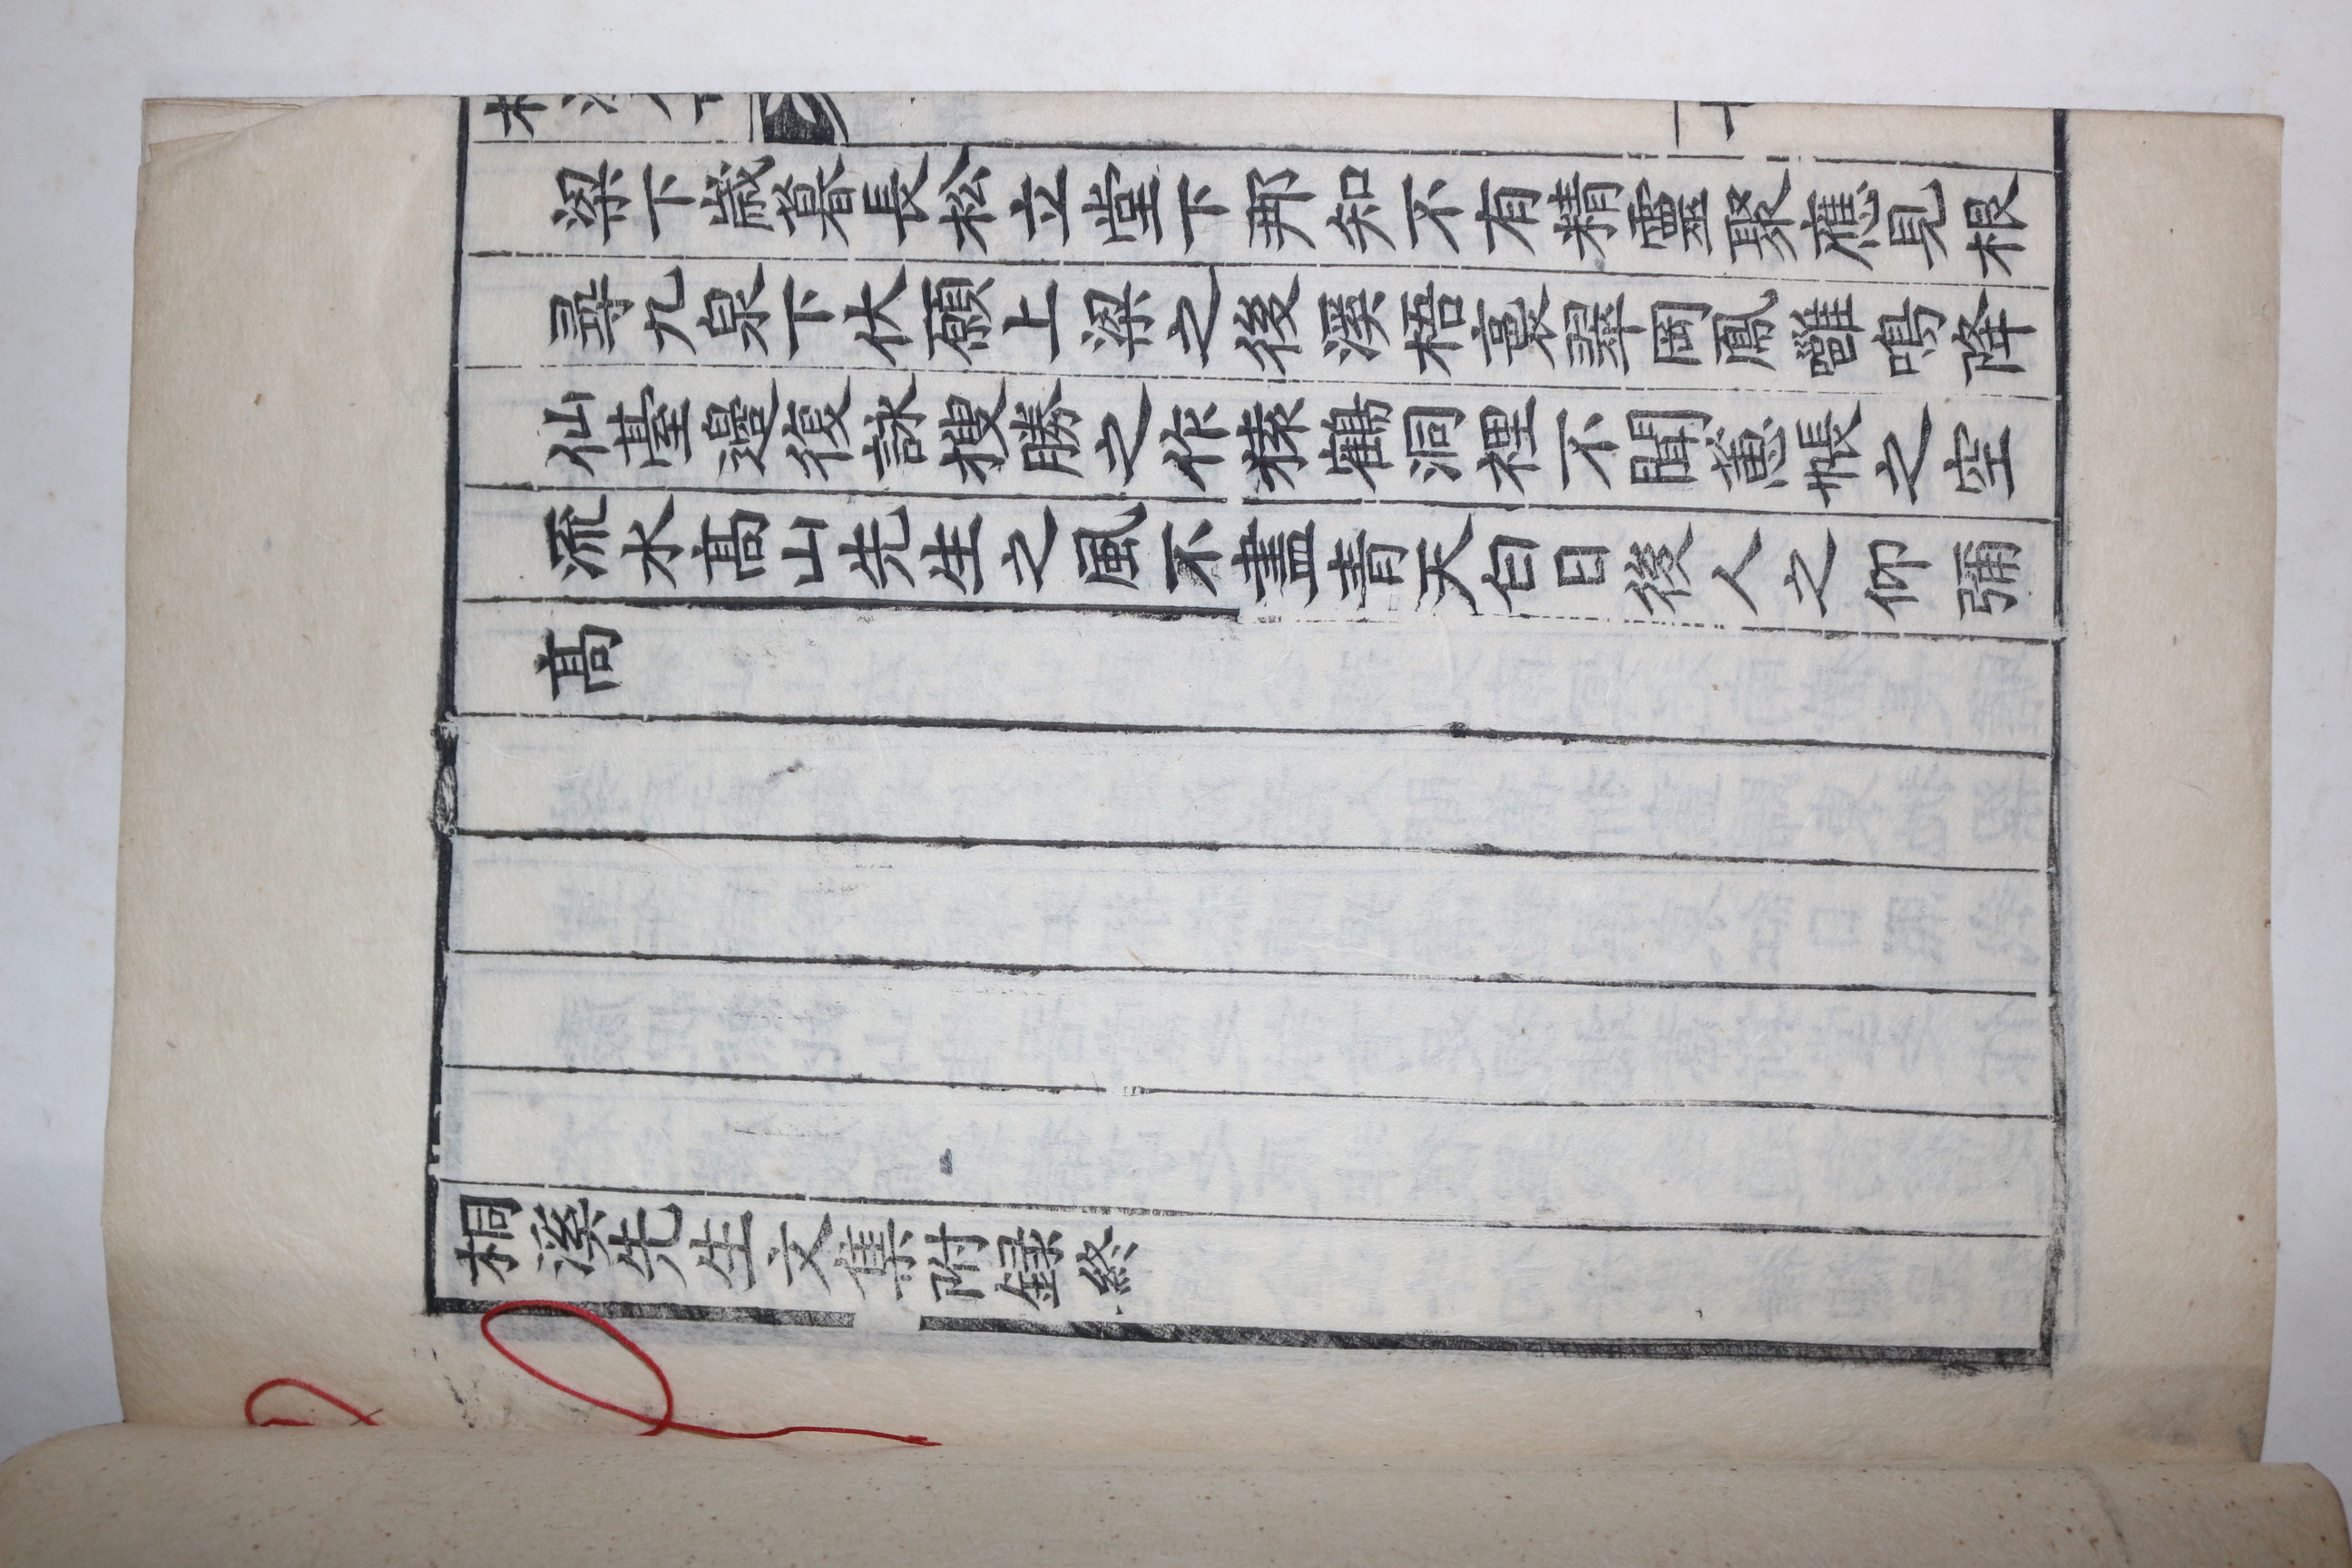 梁下歲暮長松立堂下那知不有精靈聚應見根
尋九泉下伏願上梁之後溪梧裛翠岡鳳雝鳴降
仙臺邊復詠搜勝之作猿鶴洞裡不聞蕙帳之空
流水高山先生之風不盡青天白日後人之仰彌
高
桐溪先生文集附録終